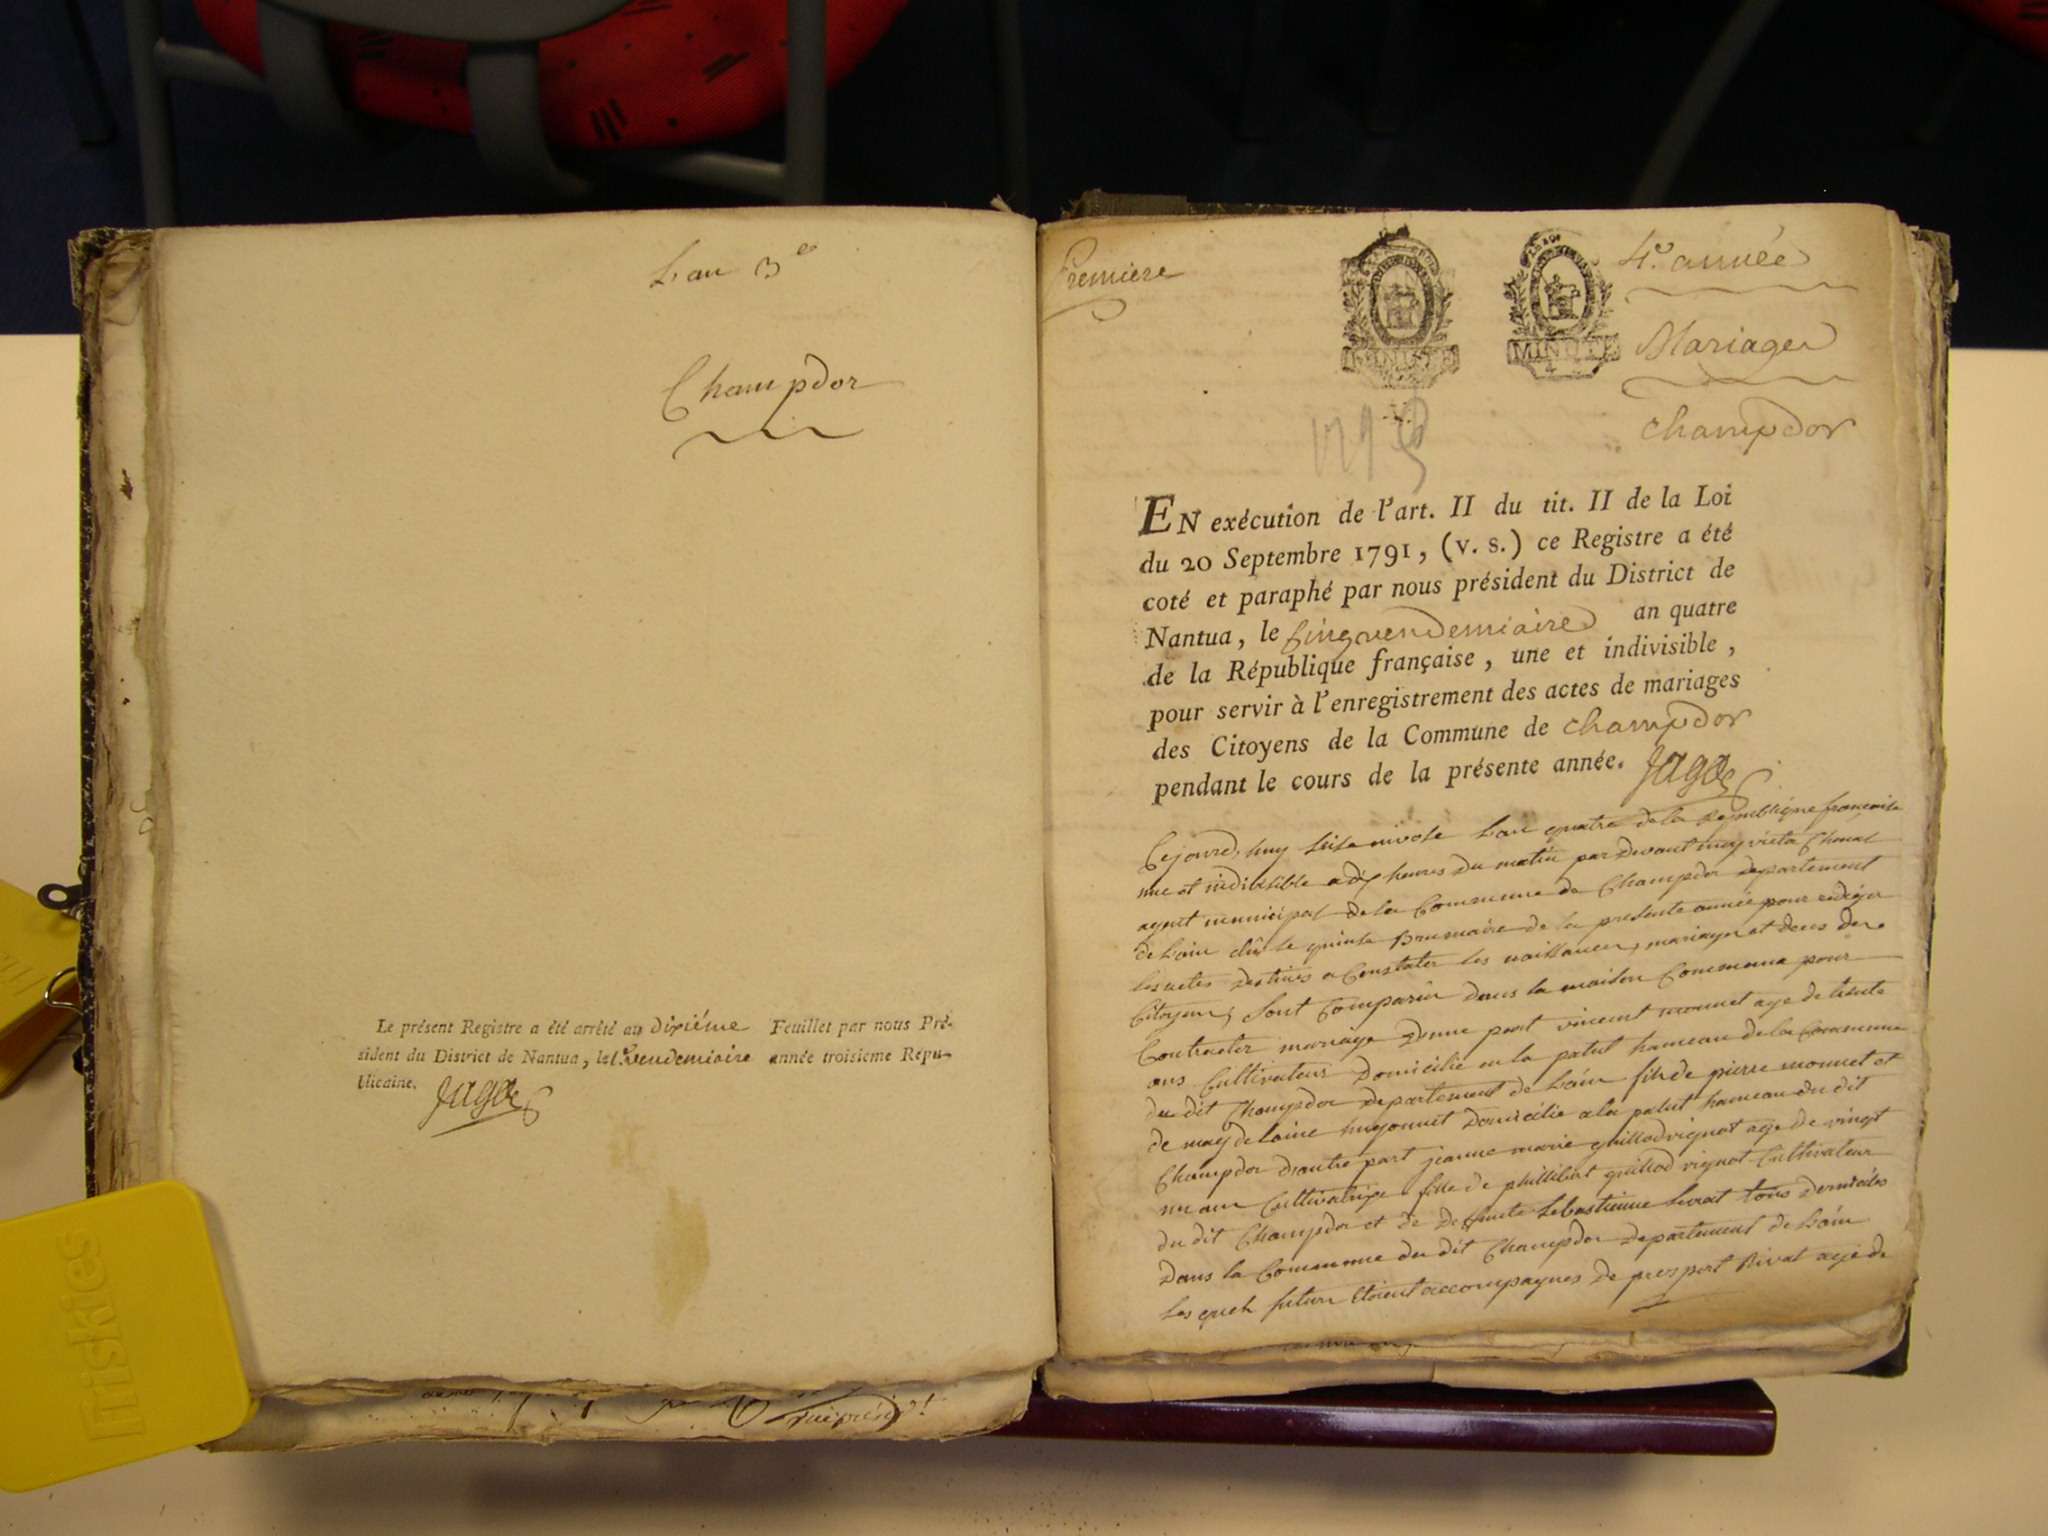 L'an 3e
Champdor
Le présent Registre a été arrêté au Dixiéme Feuillet par nous Pré-
sident du District de Nantua, le 1er Vendemiaire année troisieme Répu-
blicaine. Jagot
Premiere
4e. année
MINUTE
Mariages
Champdor
EN exécution de l'art. II du tit. II de la Loi
du 20 Septembre 1791, (v. s.) ce Registre a été
coté et paraphé par nous président du District de
Nantua, le Cinq vendemiaire an quatre
de la République française, une et indivisible,
pour servir à l'enregistrement des actes de mariages
des Citoyens de la Commune de Champdor
pendant le cours de la présente année. Jagot
Cejourd'huy seise nivose l'an quatre de la Republique francoise
une et indivisible a dix heures du matin par devant moy
agent municipal de la Commune de Champdor departement
de Lain élu le quinse Brumaire de la presente année pour rediger
les actes destinés a Constater les naissances, mariages et deces des
Citoyens, sont Comparus dans la maison Commune pour
Contracter mariage d'une part vincent monnet age de trente
ans Cultivateur Domicilie en la palut hameau de la Commune
du dit Champdor departement de Lain fils de pierre monnet et
de magdelaine Domicilie a la palut hameau du dit
Champdor d'autre part jeanne marie guillod vignot age de vingt
un ans Cultivatrice fille de philibert guillod vignot Cultivateur
du dit Champdor et de defunte sebastienne livrat tous domiciles
Dans la Commune du dit Champdor departement de Lain
Les quels futurs etoient accompagnes de prospert Rivat age de
Miskies